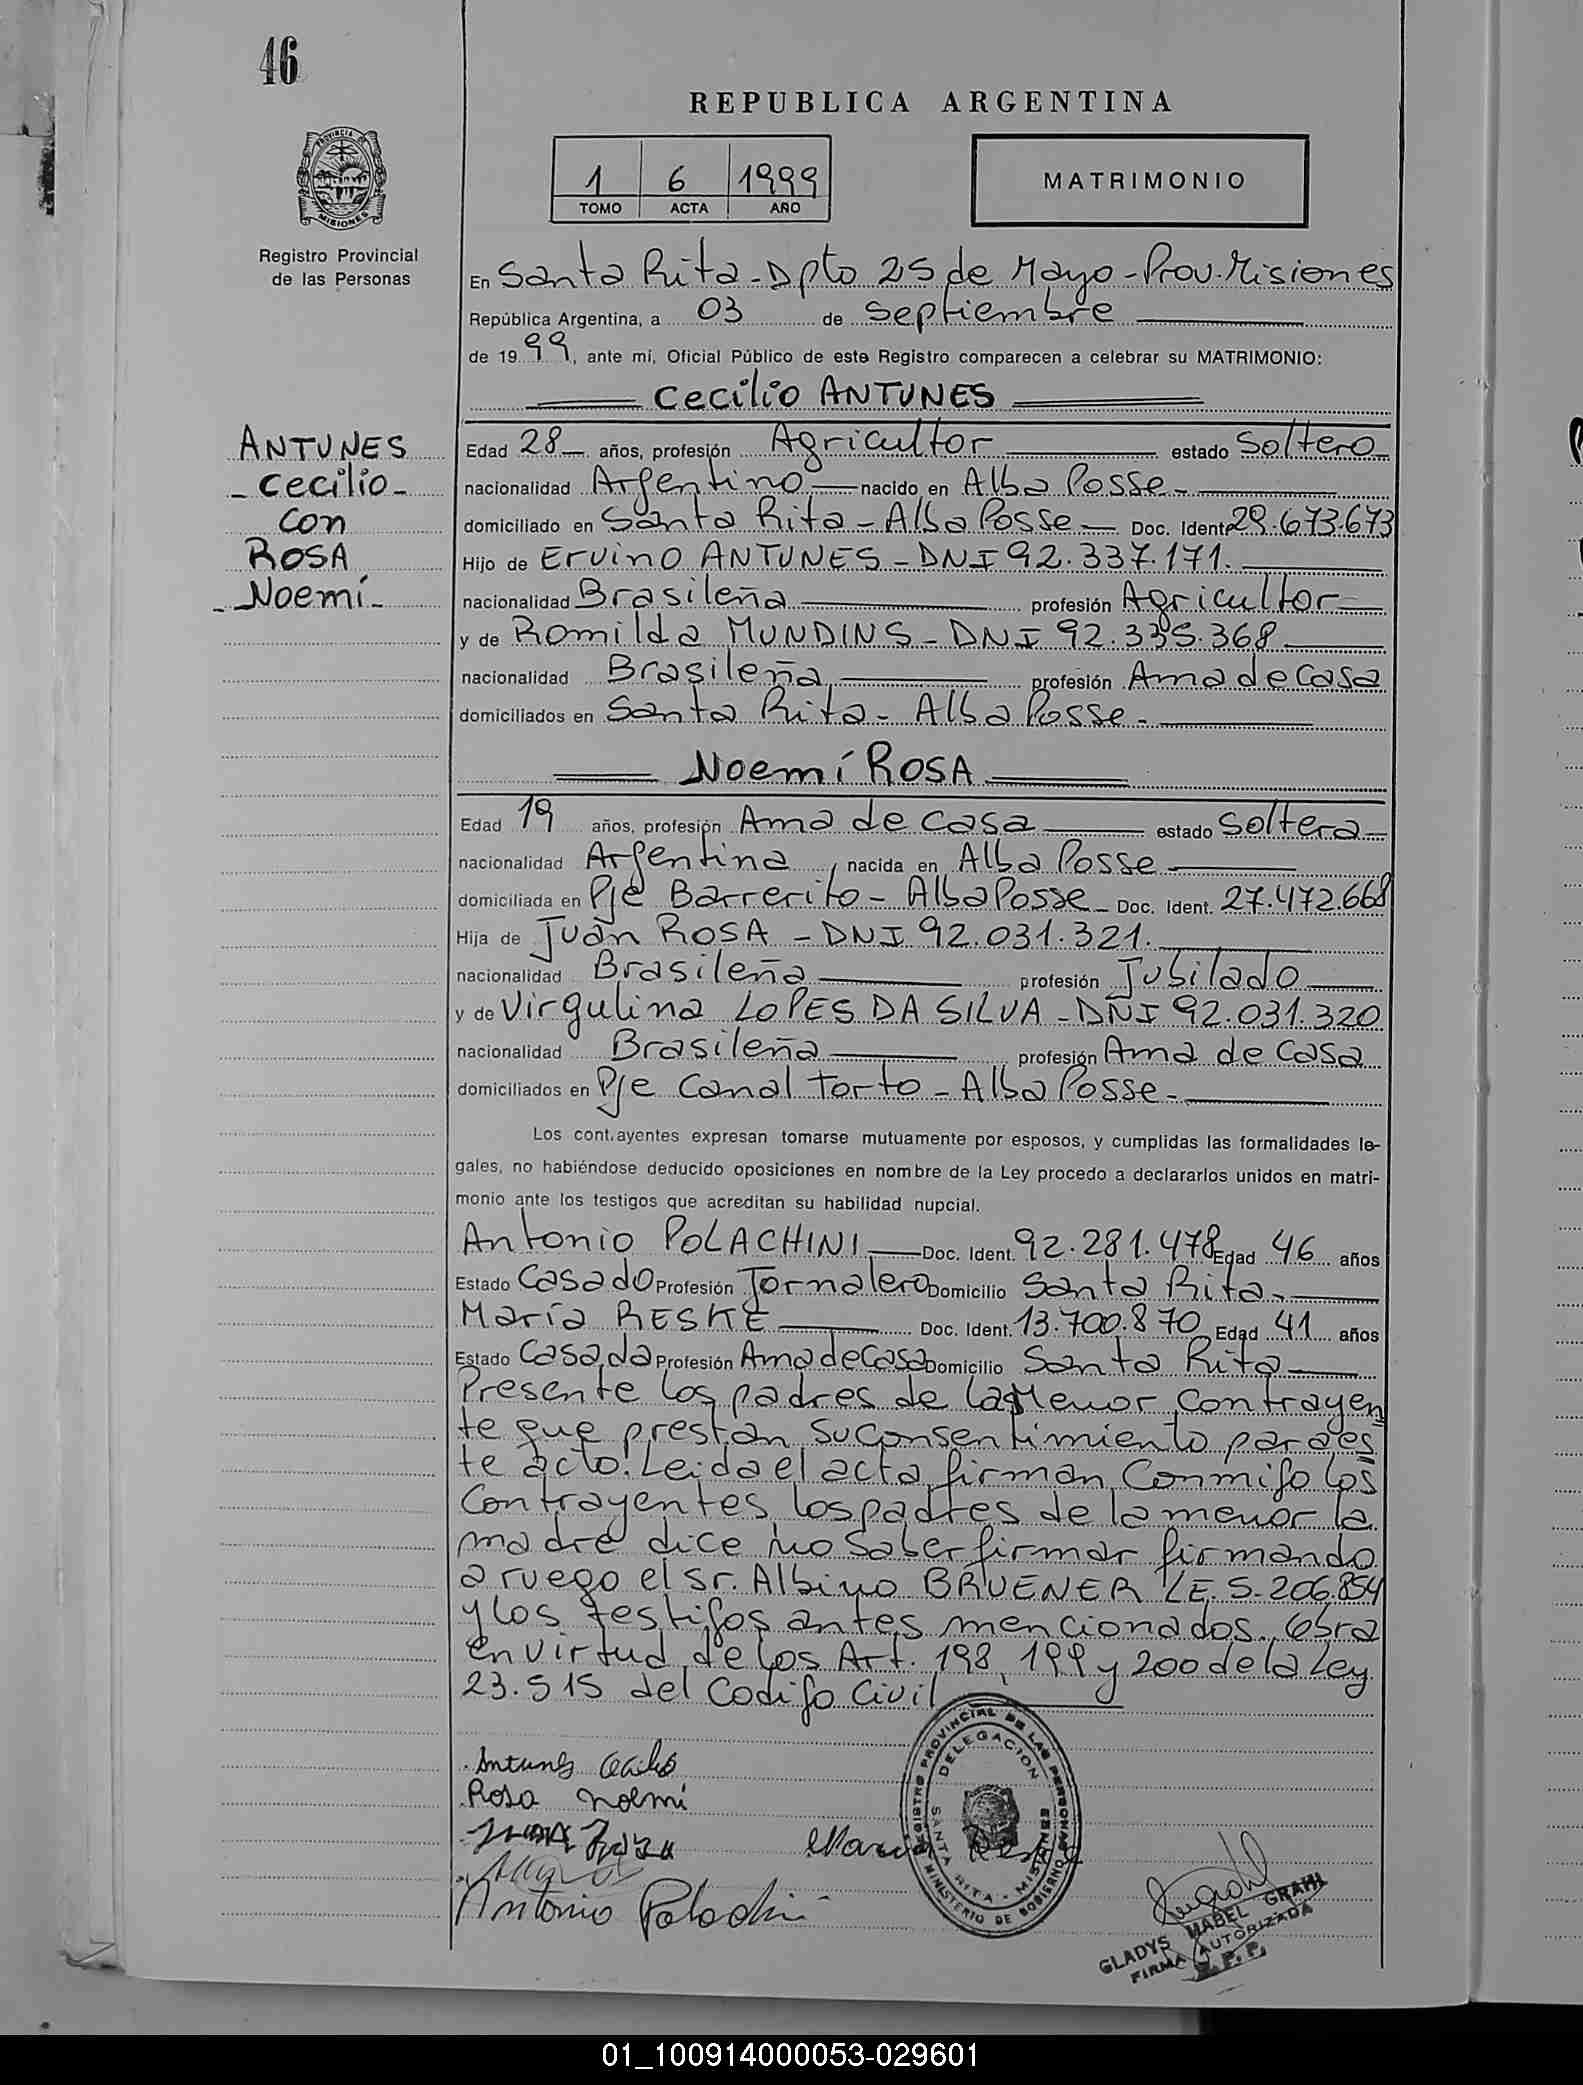 46
REPUBLICA ARGENTINA
PROVINCIA DE MISIONES
Registro Provincial
de las Personas
1 6 1999
TOMO ACTA AÑO
MATRIMONIO
En Santa Rita - Dpto 25 de Mayo - Prov. Misiones
República Argentina, a 03 de septiembre
de 1999, ante mí, Oficial Público de este Registro comparecen a celebrar su MATRIMONIO:
Cecilio ANTUNES
ANTUNES
- Cecilio -
con
ROSA
- Noemí -
Edad 28 años, profesión Agricultor estado Soltero
nacionalidad Argentino nacido en Alba Posse -
domiciliado en Santa Rita - Alba Posse - Doc. Ident. 29.673.673
Hijo de Ervino ANTUNES - DNI 92.337.171.
nacionalidad Brasileña profesión Agricultor
y de Romilda MUNDINS - DNI 92.335.368
nacionalidad Brasileña profesión Ama de Casa
domiciliados en Santa Rita - Alba Posse -
Noemí ROSA
Edad 19 años, profesión Ama de Casa estado Soltera
nacionalidad Argentina, nacida en Alba Posse
domiciliada en Pje Barrerito - Alba Posse - Doc. Ident. 27.472.668
Hija de Juan ROSA - DNI 92.031.321.
nacionalidad Brasileña profesión Jubilado
y de Virgulina LOPES DA SILVA - DNI 92.031.320
nacionalidad Brasileña profesión Ama de Casa
domiciliados en Pje Canal Torto - Alba Posse -
Los cont.ayentes expresan tomarse mutuamente por esposos, y cumplidas las formalidades le-
gales, no habiéndose deducido oposiciones en nombre de la Ley procedo a declararlos unidos en matri-
monio ante los testigos que acreditan su habilidad nupcial.
Antonio POLACHINI Doc. Ident. 92.281.478 Edad 46 años
Estado Casado Profesión Jornalero Domicilio Santa Rita -
María RESKE Doc. Ident. 13.700.870 Edad 41 años
Estado Casada Profesión Ama de Casa Domicilio Santa Rita
Presente los padres de la Menor Contrayen
te que prestan su consentimiento para es
te acto. Leida el acta firman Conmigo los
Contrayentes, los padres de la menor la
madre dice no saber firmar firmando
a ruego el sr. Albino BRUENER LE. 5.206.854
y los testigos antes mencionados. Obra
en virtud de los Art. 198, 199 y 200 de la Ley
23.515 del Codigo Civil
Antunes Cecilio
Rosa Noemi
Juan Rosa
Maria Reske
Antonio Polachini
REGISTRO PROVINCIAL DE LAS PERSONAS
DELEGACION
SANTA RITA - MISIONES
MINISTERIO DE GOBIERNO
GLADYS MABEL GRAHL
FIRMA AUTORIZADA
R. P. P.
01_100914000053-029601